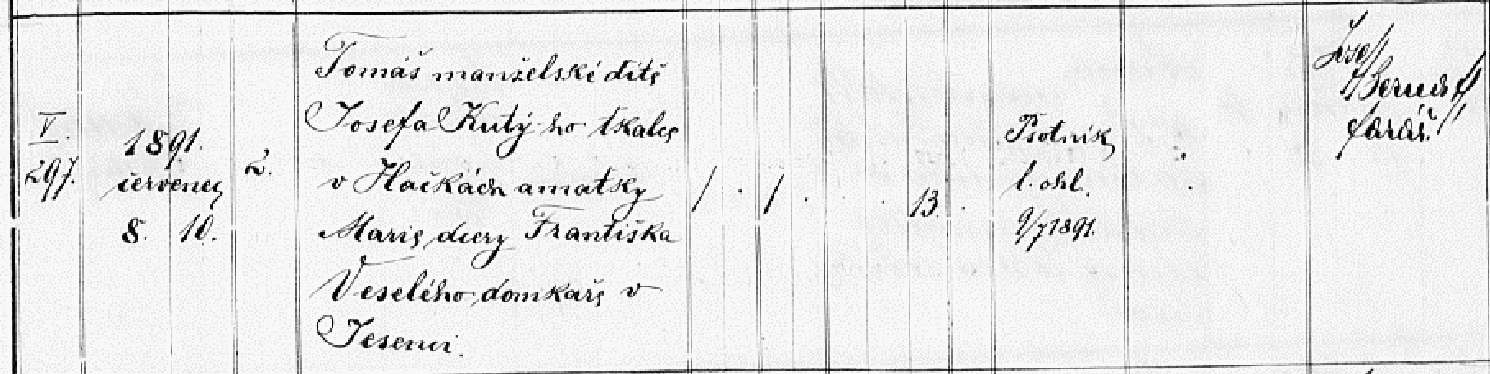 V.
297.
1891.
červenec
8. 10.
2.
Tomáš manželské dítě
Josefa Kutý-ho tkalce
v Hačkách a matky
Marie, dcery Františka
Veselého, domkaře v
Jesenci.
/ . /
13.
Psotník
l. ohl.
9/7 1891.
Josef
farář